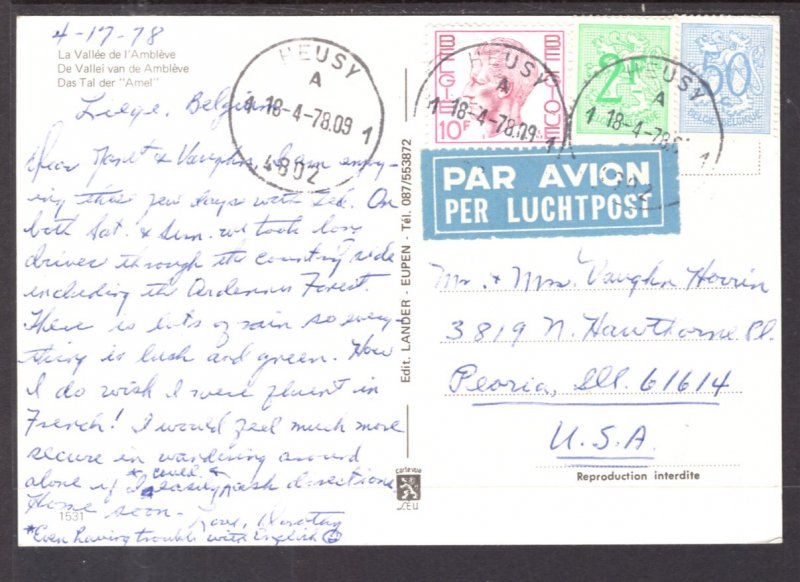 4-17-78
La Vallée de l'Amblève
De Vallei van de Amblève
Das Tal der "Amel"
Liege, Belgium
Dear Janet & Vaughn, Am enjoy-
ing these few days with Ed. On
both Sat. & Sun. we took long
drives through the country side
including the Ardennes Forest.
There is lots of rain so every-
thing is lush and green. How
I do wish I were fluent in
French! I would feel much more
secure in wandering around
alone if I could easily ask directions.
Home soon-
Love, Dorothy
*Even having trouble with English
1531
Edit. LANDER - EUPEN - Tél. 087/553872
carte vue
SEU
BELGIE
BELGIQUE
10F
2F
50c
BELGIE-BELGIQUE
HEUSY
A
1 18-4-78.09 1
4802
HEUSY
A
1 18-4-78.09 1
HEUSY
A
1 18-4-78. 1
4802
PAR AVION
PER LUCHTPOST
Mr. & Mrs. Vaughn Hovrin
3819 N. Hawthorne Pl.
Peoria, Ill. 61614
U.S.A.
Reproduction interdite